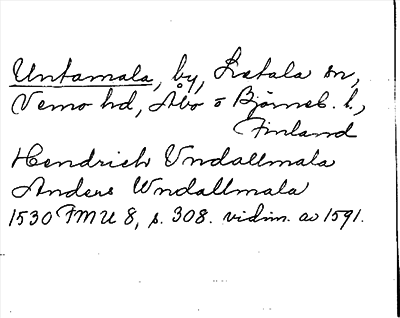 Untamala, by, Letala sn,
Vemo hd, Åbo o Björneb. l.,
Finland
Hendrich Vndallmala
Anders Wndallmala
1530 FMU 8, s. 308. vidim. av 1591.